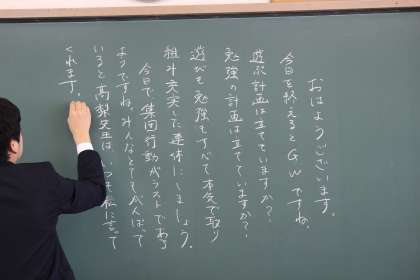 おはようございます。
今日を終えるとGWですね。
遊ぶ計画は立てていますか？
勉強の計画は立てていますか？
遊びも勉強もすべて本気で取り
組み充実した連休にしましょう。
今日で集団行動がラストであり
ようですね。みんなとてもがんばって
いると高梨先生は、いつも私に言って
くれます。